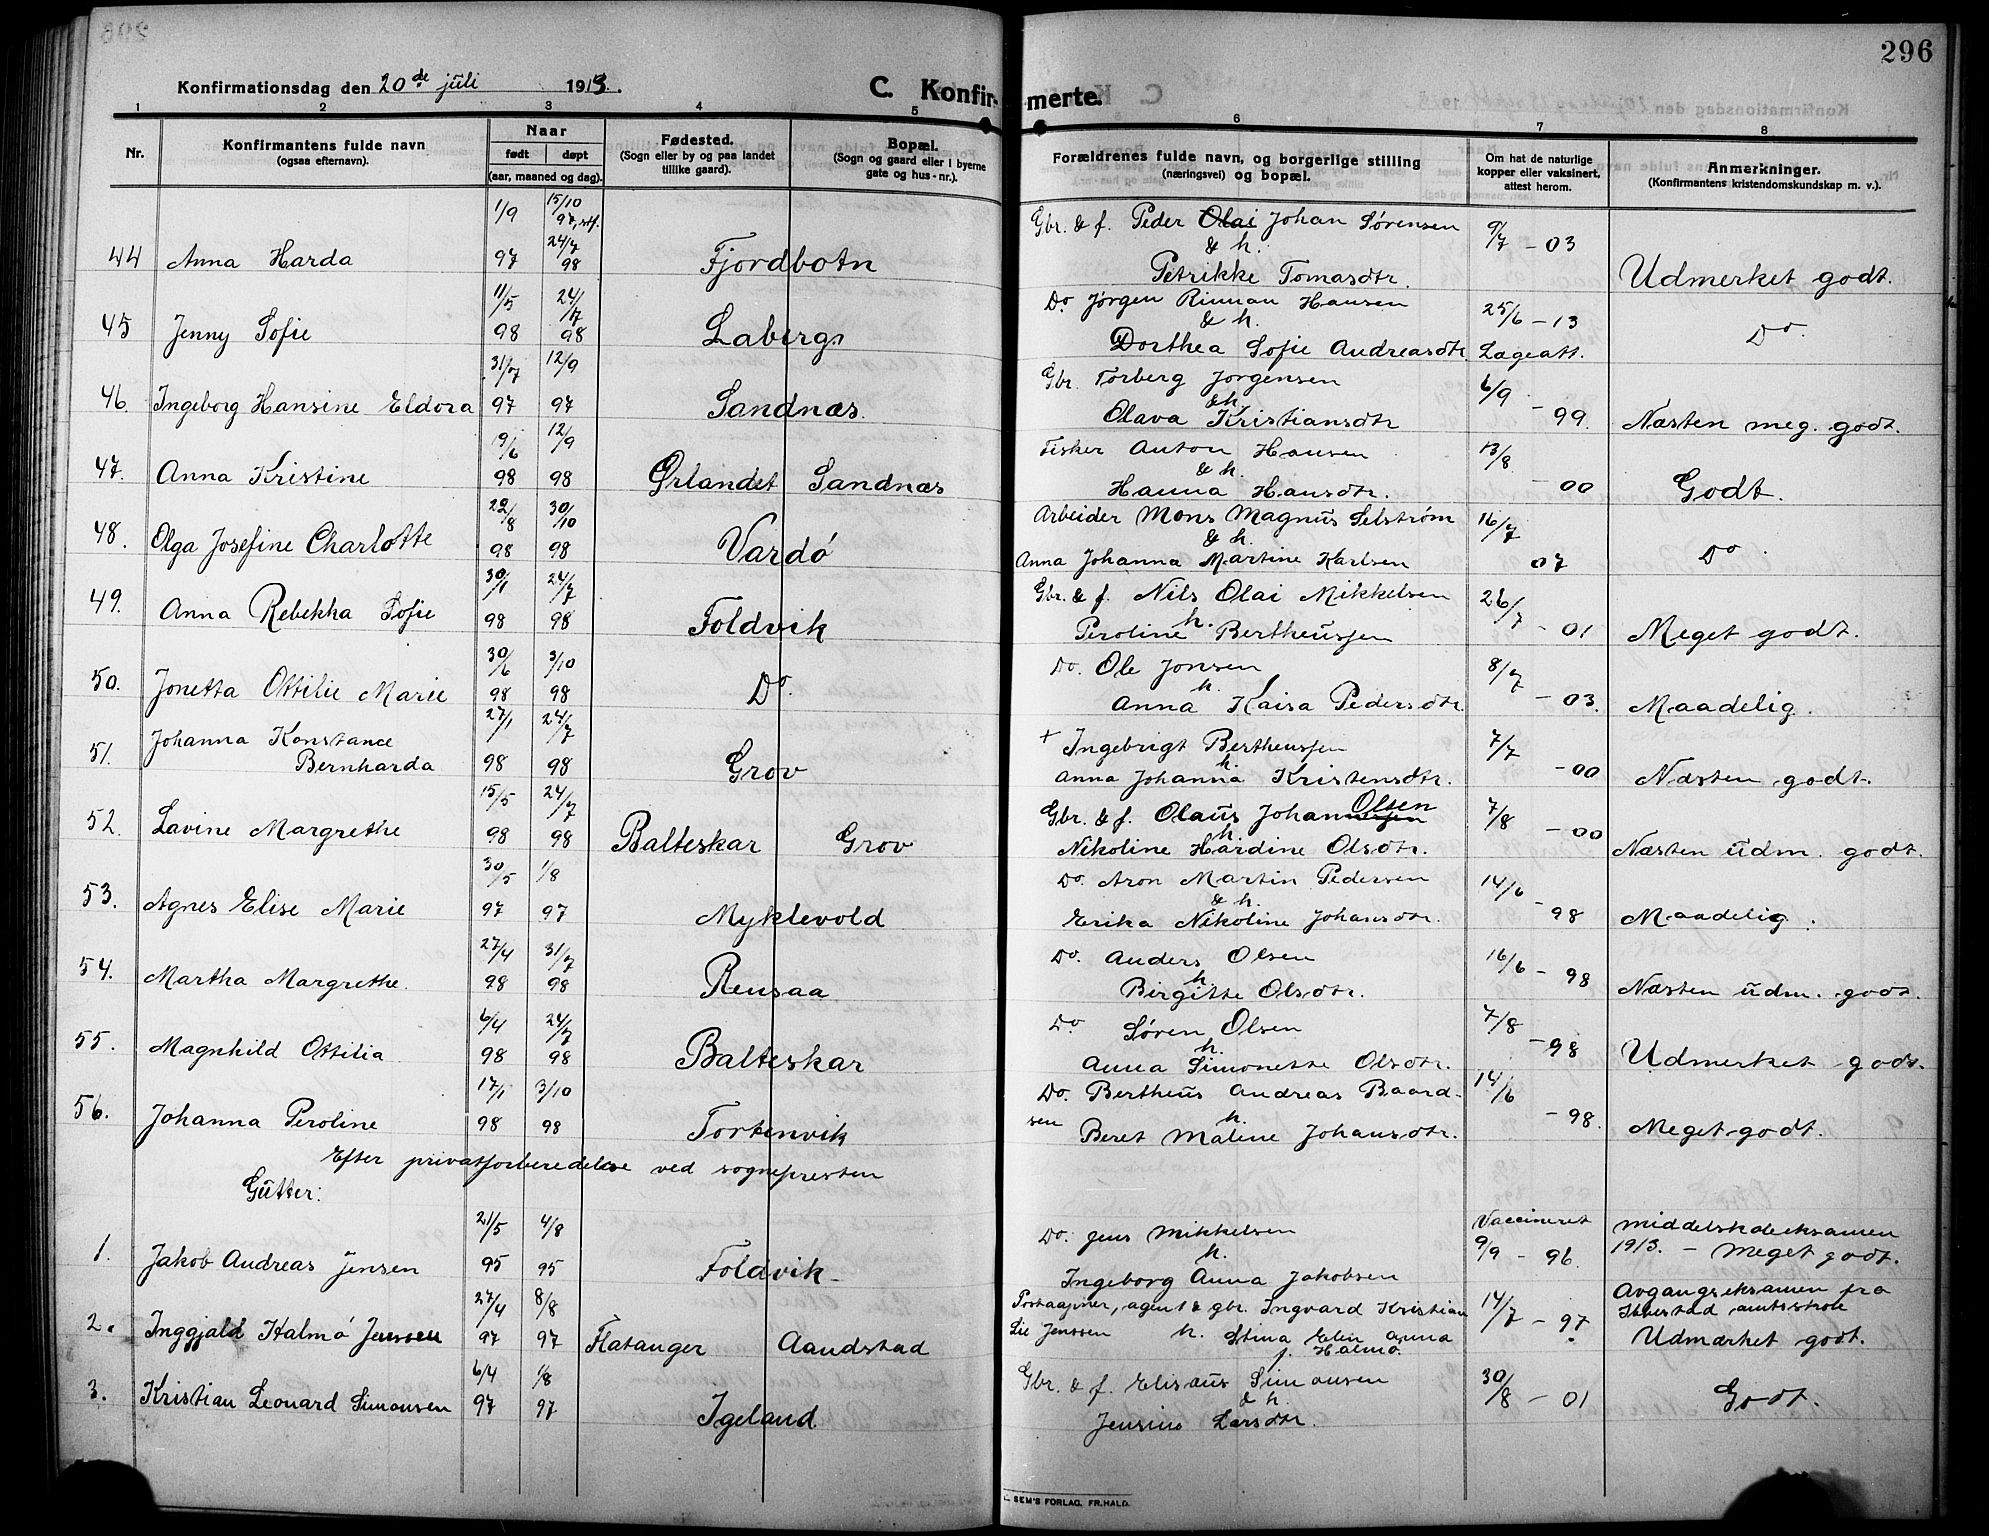 296
Konfirmationsdag den 20de juli 1913.
C. Konfirmerte.
1 2 3 4 5 6 7 8
Nr.
Konfirmantens fulde navn
(ogsaa efternavn).
Naar
født døpt
(aar, maaned og dag).
Fødested.
(Sogn eller by og paa landet
tillike gaard).
Bopæl.
(Sogn og gaard eller i byerne
gate og hus-nr.).
Forældrenes fulde navn, og borgerlige stilling
(næringsvei) og bopæl.
Om hat de naturlige
kopper eller vaksinert,
attest herom.
Anmerkninger.
(Konfirmantens kristendomskundskap m. v.).
1/9 15/10 97, stf. Gbr. & f. Peder Olai Johan Sørensen 9/7 - 03
24/7 & h.
44 Anna Harda 97 98 Fjordbotn Petrikke Tomasdtr. Udmerket godt.
11/5 24/7 Do Jørgen Rinnan Hansen 25/6 - 13
& h.
45 Jenny Sofie 98 98 Labergs Dorthea Sofie Andreasdtr. Lægeatt. Do.
31/7 12/9 Gbr. Torberg Jørgensen 6/9
& h.
46. Ingeborg Hansine Eldora 97 97 Sandnæs. Olava Kristiansdtr - 99. Næsten meg. godt.
19/6 12/9 Fisker Anton Hansen 13/8
& h.
47. Anna Kristine 98 98 Ørlandet Sandnæs Hanna Hansdtr. - 00 Godt.
22/8 30/10 Arbeider Mons Magnus Selstrøm 16/7
& h.
48. Olga Josefine Charlotte 98 98 Vardø Anna Johanna Martine Karlsen 07 Do.
30/1 24/7 Gbr. & f. Nils Olai Mikkelsen 26/7
h.
49. Anna Rebekka Sofie 98 98 Foldvik Peroline Bertheussen - 01 Meget godt.
30/6 3/10 Do. Ole Jonsen 8/7
h.
50. Jonetta Ottilie Marie 98 98 Do. Anna Kaisa Pedersdtr. - 03. Maadelig.
27/1 24/7 + Ingebrigt Bertheussen 7/7
h.
51. Johanna Konstance
Bernharda 98 98 Grov Anna Johanna Kristensdtr. - 00 Næsten godt.
15/5 24/7 Gbr. & f. Olaus Johannessen Olsen 7/8
h.
52. Lavine Margrethe 98 98 Balteskar Grov Nikoline Hardine Olsdtr. - 00 Næsten udm. godt.
30/5 1/8 Do. Aron Martin Pedersen 14/6
& h.
53. Agnes Elise Marie 97 97 Myklevold Erika Nikoline Johansdtr. - 98 Maadelig.
27/4 31/7 Do. Anders Olsen 16/6
h.
54. Martha Margrethe. 98 98 Rensaa Birgitte Olsdtr. - 98 Næsten udm. godt.
6/4 24/7 Do Søren Olsen 7/8
h.
55. Magnhild Ottilia 98 98 Balteskar Anna Simonette Olsdtr. - 98 Udmerket godt.
17/1 3/10 Do. Bertheus Andreas Baard- 14/6
sen h.
56. Johanna Peroline 98 98 Tortenvik Beret Malene Johansdtr. - 98. Meget godt.
Efter privatforberedelse ved sognepresten
Gutter:
21/5 4/8 Do. Jens Mikkelsen Vaccineret Middelskoleeksamen
h.
1. Jakob Andreas Jensen 95 95 Foldvik Ingeborg Anna Jakobsen 9/9 - 96. 1913. - Meget godt.
27/4 8/8 Postaapner, agent & gbr. Ingvard Kristian 14/7 Avgangseksamen fra
2. Inggjald Halmø Jenssen 97 97 Flatanger Aandstad Lie Jenssen h. Stina Elin Anna f. Halmø. - 97. amtsskole
Udmærket godt.
6/4 1/8 Gbr. & f. Elisæus Simonsen 30/8
& h.
3. Kristian Leonard Simonsen 97 97 Igeland Jensine Larsdtr. - 01 Godt.
SEM'S FORLAG, FR.HALD.